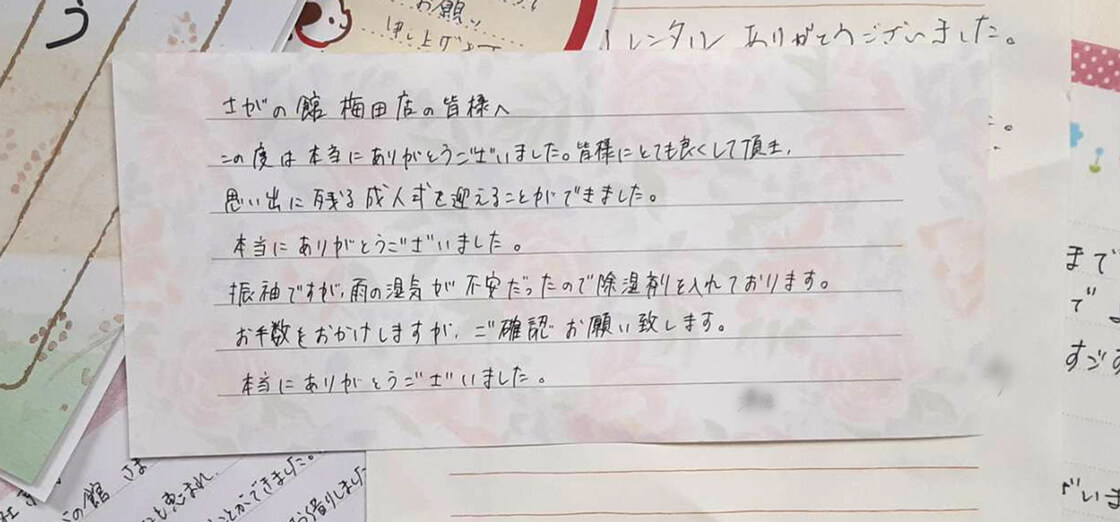 う
お願い
申し上げます
レンタル ありがとうございました。
さがの館 梅田店の皆様へ
この度は本当にありがとうございました。皆様にとても良くして頂き、
思い出に残る成人式を迎えることができました。
本当にありがとうございました。
振袖ですが、雨の湿気が不安だったので除湿剤を入れております。
お手数をおかけしますが、ご確認お願い致します。
本当にありがとうございました。
まで
で
すごす
の館 さま
も恵まれ、
ことができました。
お借りしまし